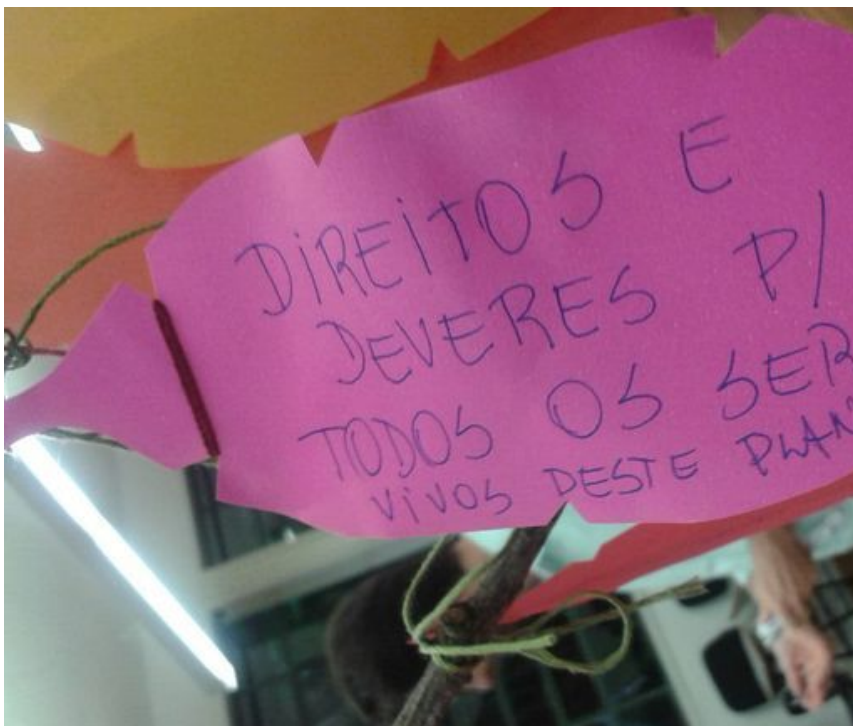 DIREITOS E
DEVERES P/
TODOS OS SER
VIVOS DESTE PLAN